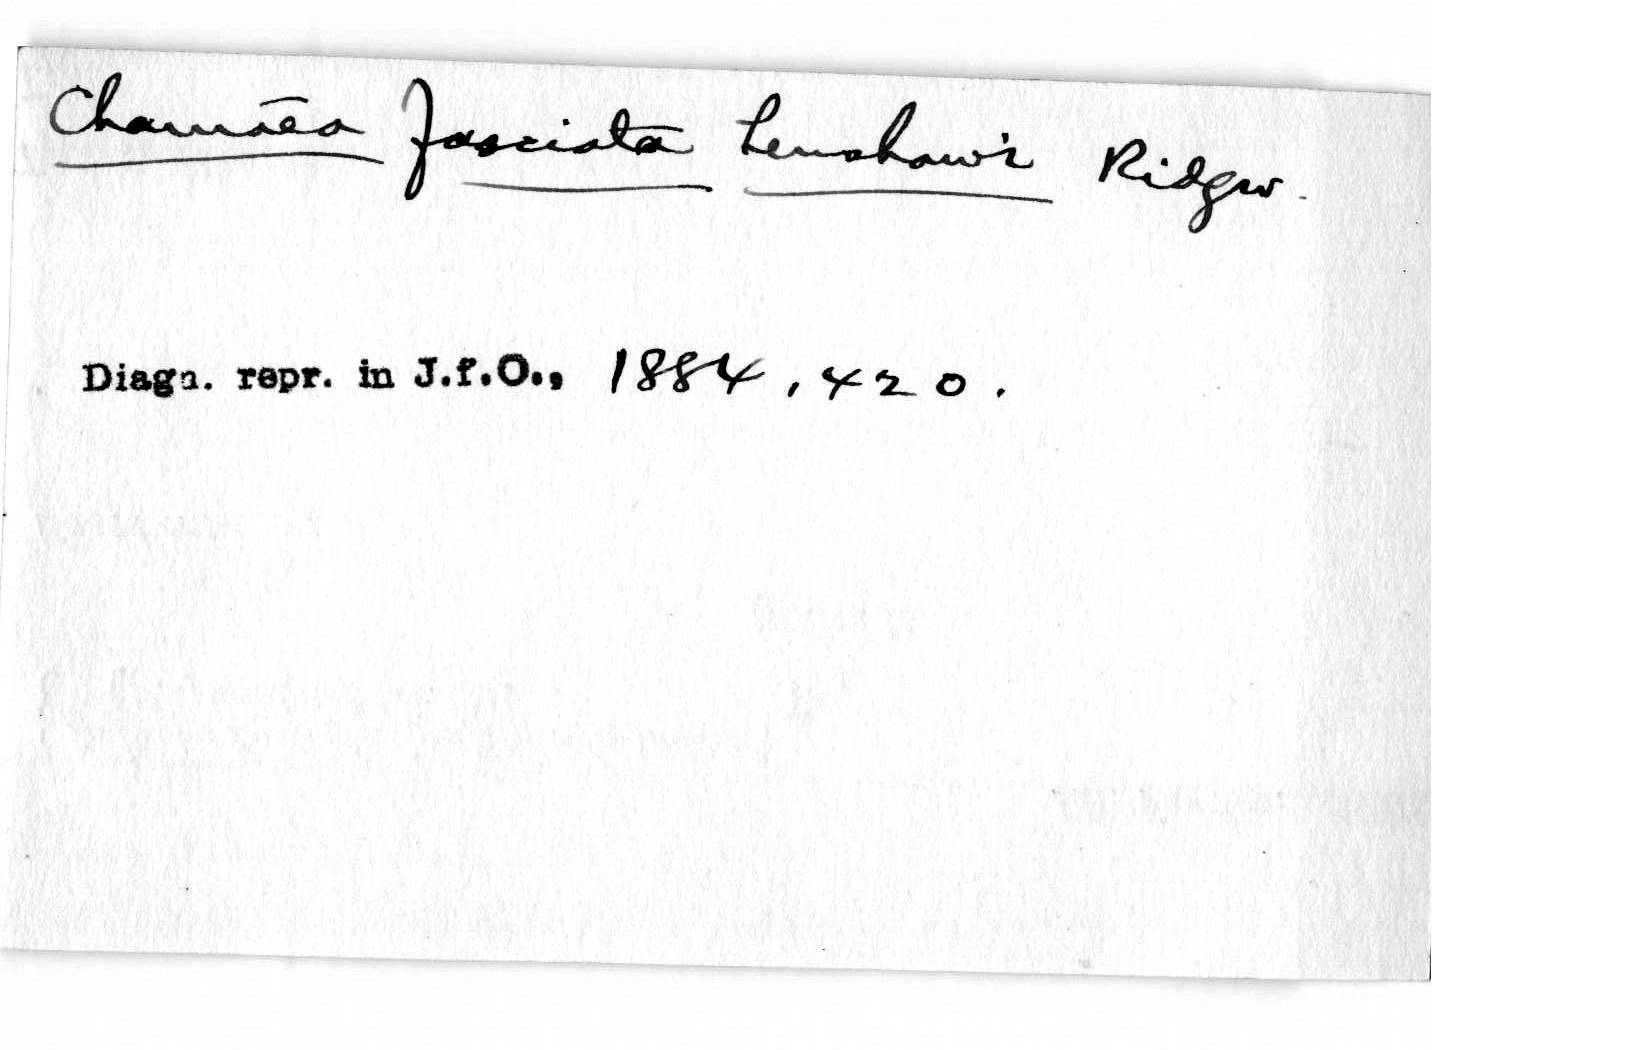 Chamaea fasciata henshawi Ridgw.
Diagn. repr. in J.f.O., 1884, 420.